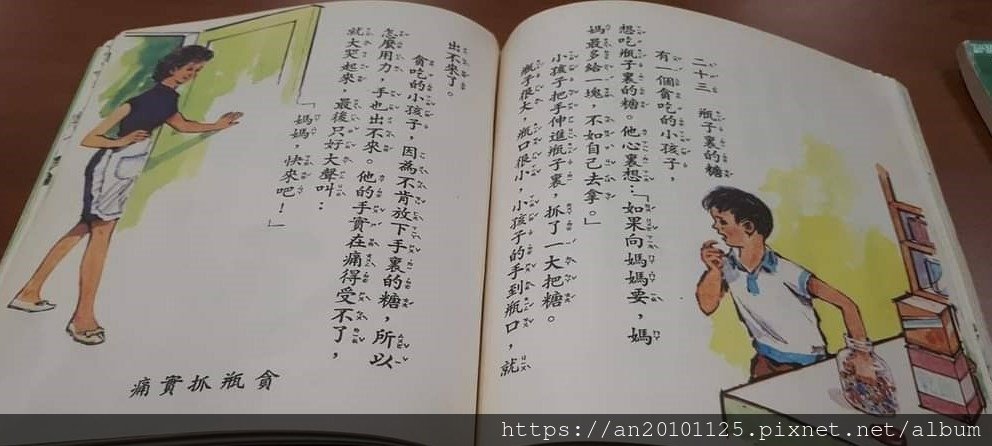 二十三　瓶子裏的糖
有一個貪吃的小孩子，
想吃瓶子裏的糖。他心裏想：「如果向媽媽要，媽
媽最多給一塊，不如自己去拿。」
小孩子把手伸進瓶子裏，抓了一大把糖。
瓶子很大，瓶口很小，小孩子的手到瓶口，就
出不來了。
貪吃的小孩子，因為不肯放下手裏的糖，所以
怎麼用力，手也出不來。他的手實在痛得受不了，
就大哭起來，最後只好大聲叫：
「媽媽，快來吧！」
貪瓶抓實痛
https://an20101125.pixnet.net/album